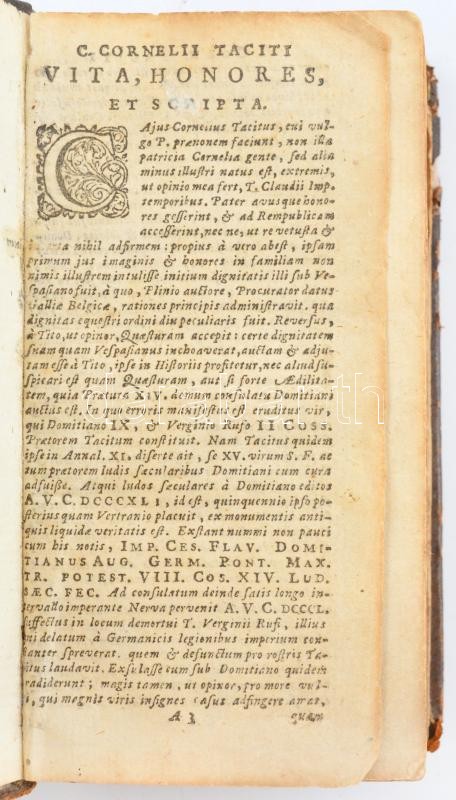 C. CORNELII TACITI
VITA, HONORES,
ET SCRIPTA.
CAjus Cornelius Tacitus, cui vul-
go P. prænomen faciunt, non illa
patricia Cornelia gente, sed alia
minus illustri natus est, extremis,
ut opinio mea fert, T. Claudii Imp.
temporibus. Pater avusque hono-
res gesserint, & ad Rempublicam
accesserint, nec ne, ut re vetusta &
nihil adfirmem: propius à vero abest, ipsam
primum jus imaginis & honores in familiam non
nimis illustrem intulisse initium dignitatis illi sub Ve-
spasiano fuit, à quo, Plinio auctore, Procurator datus
Galliæ Belgicæ, rationes principis administravit. qua
dignitas equestri ordini diu peculiaris fuit. Reversus,
à Tito, ut opinor, Quæsturam accepit: certe dignitatem
suam quam Vespasianus inchoaverat, auctam & adju-
tam esse à Tito, ipse in Historiis profitetur, nec aliud su-
spicari est quam Quæsturam, aut si forte Ædilita-
tem, quia Prætura XIV. demum consulatu Domitiani
auctus est. In quo erroris manifestus est eruditus vir,
qui Domitiano IX, & Verginio Rufo II Coss.
Prætorem Tacitum constituit. Nam Tacitus quidem
ipse in Annal. XI. diserte ait, se XV. virum S. F. ac
tum prætorem ludis sæcularibus Domitiani cum cura
adfuisse. Atqui ludos sæculares à Domitiano editos
A. V. C. DCCCXLI, id est, quinquennio ipso po-
sterius quam Vertranio placuit, ex monumentis anti-
quis liquidæ veritatis est. Exstant nummi non pauci
cum his notis, IMP. CES. FLAV. DOMI-
TIANUS AUG. GERM. PONT. MAX.
TR. POTEST. VIII. COS. XIV. LUD.
SÆC. FEC. Ad consulatum deinde satis longo in-
tervallo imperante Nerva pervenit A. V. C. DCCCL.
suffectus in locum demortui T. Verginii Rufi, illius
qui delatum à Germanicis legionibus imperium con-
stanter spreverat. quem & defunctum pro rostris Ta-
citus laudavit. Exsulasse eum sub Domitiano quidem
tradiderunt; magis tamen, ut opinor, pro more vul-
i, qui magnis viris insignes casus adfingere amat,
A 3 quam